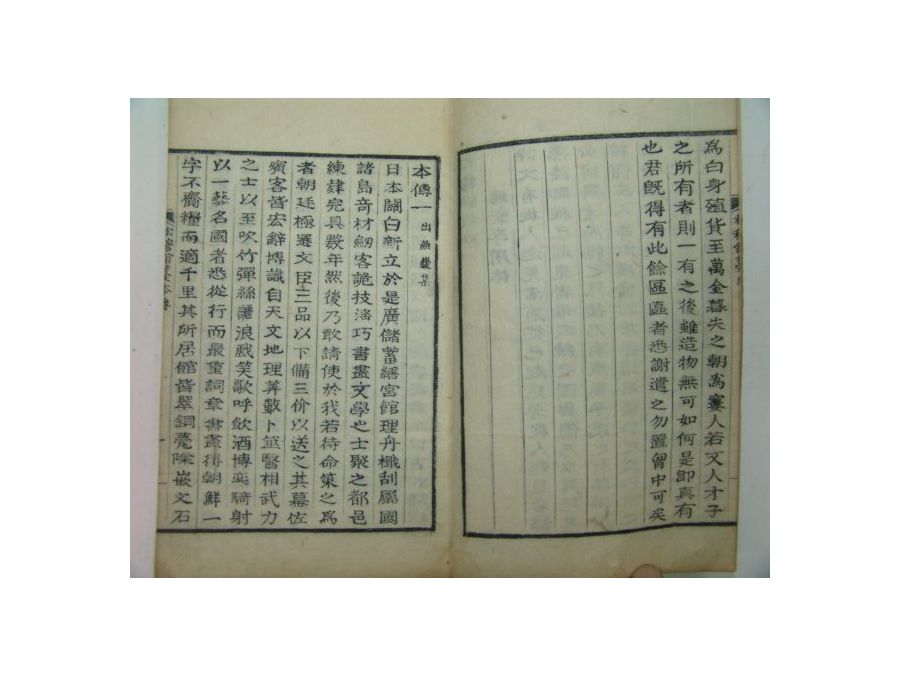 為白身殖貨至萬金暮失之朝為窶人若文人才子
之所有者則一有之後雖造物無可如何是卽真有
也君旣得有此餘區區者悉謝遣之勿置胷中可矣
本傳一 出燕巖集
日本關白新立於是廣儲蓄繕宮館理舟檝刮屬國
諸島奇材劒客詭技滛巧書畫文學之士聚之都邑
練肄完具數年然後乃敢請使於我若待命策之為
者朝廷極選文臣三品以下備三价以送之其幕佐
賓客皆宏辭博識自天文地理筭數卜筮醫相武力
之士以至吹竹彈絲謔浪戲笑歌呼飮酒博奕騎射
以一藝名國者悉從行而最重詞章書畫得朝鮮一
字不齎糧而適千里其所居館皆翠銅甍除嵌文石